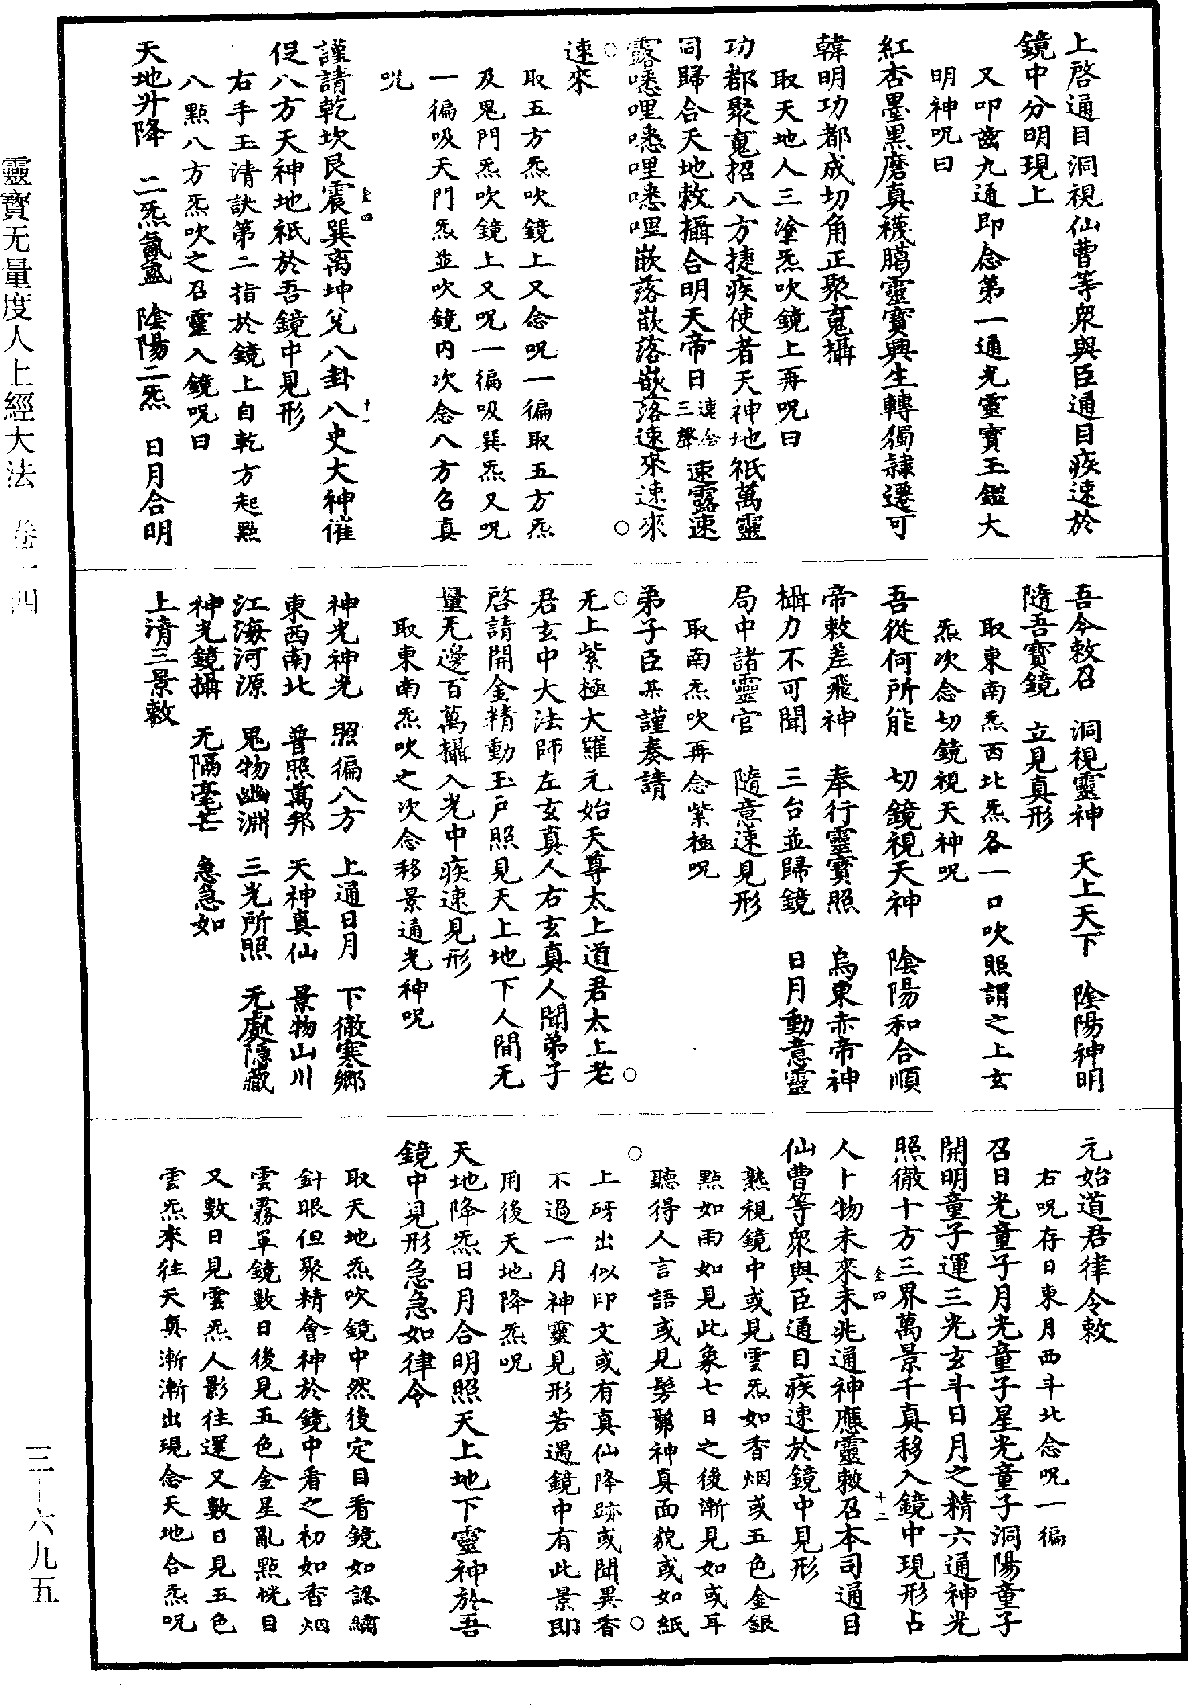 上啓通目洞視仙曹等衆與臣通目疾速於
鏡中分明現上
又叩齒九通即念第一通光靈寶玉鑑大
明神呪曰
紅杏墨黑磨真襪臈靈寶興生轉獨隸遷可
韓明功都成切角正聚䰟攝
取天地人三塗炁吹鏡上再呪曰
功都聚䰟招八方捷疾使者天神地祇萬靈
同歸合天地敕攝合明天帝日速念三聲速露速
露㗭哩㗭哩㗭哩嵌落嵌落嵌落速來速來
速來
取五方炁吹鏡上又念呪一徧取五方炁
及鬼門炁吹鏡上又呪一徧吸巽炁又呪
一徧吸天門炁並吹鏡内次念八方召真
呪
謹請乾坎艮震巽离坤兌八卦八史大神催
促八方天神地祇於吾鏡中見形
右手玉清訣第二指於鏡上自乾方起點
八點八方炁吹之召靈入鏡呪曰
天地升降 二炁氤氳 陰陽二炁 日月合明
吾今敕召 洞視靈神 天上天下 陰陽神明
隨吾寶鏡 立見真形
取東南炁西北炁各一口吹照謂之上玄
炁次念切鏡視天神呪
吾從何所能 切鏡視天神 陰陽和合順
帝敕差飛神 奉行靈寶照 烏東赤帝神
攝力不可聞 三台並歸鏡 日月動意靈
局中諸靈官 隨意速見形
取南炁吹再念紫極呪
弟子臣某謹奏請
无上紫極大羅元始天尊太上道君太上老
君玄中大法師左玄真人右玄真人聞弟子
啓請開金精動玉戶照見天上地下人間无
量无邊百萬攝入光中疾速見形
取東南炁吹之次念移景通光神呪
神光神光 照徧八方 上通日月 下徹寒鄉
東西南北 普照萬邦 天神真仙 景物山川
江海河源 鬼物幽淵 三光所照 无處隱藏
神光鏡攝 无隔毫芒 急急如
上清三景敕
元始道君律令敕
右呪存日東月西斗北念呪一徧
召日光童子月光童子星光童子洞陽童子
開明童子運三光玄斗日月之精六通神光
照徹十方三界萬景千真移入鏡中現形占
人卜物未來未兆通神應靈敕召本司通目
仙曹等衆與臣通目疾速於鏡中見形
熟視鏡中或見雲炁如香烟或五色金銀
點如雨如見此象七日之後漸見如或耳
聽得人言語或見髣髴神真面貌或如紙
上砑出似印文或有真仙降跡或聞異香
不過一月神靈見形若遇鏡中有此景即
用後天地降炁呪
天地降炁日月合明照天上地下靈神於吾
鏡中見形急急如律令
取天地炁吹鏡中然後定目看鏡如認繡
針眼但聚精會神於鏡中看之初如香烟
雲霧罩鏡數日後見五色金星亂點恍目
又數日見雲炁人影往還又數日見五色
雲炁來往天真漸漸出現念天地合炁呪
靈寶无量度人上經大法 卷一四
三—六九五